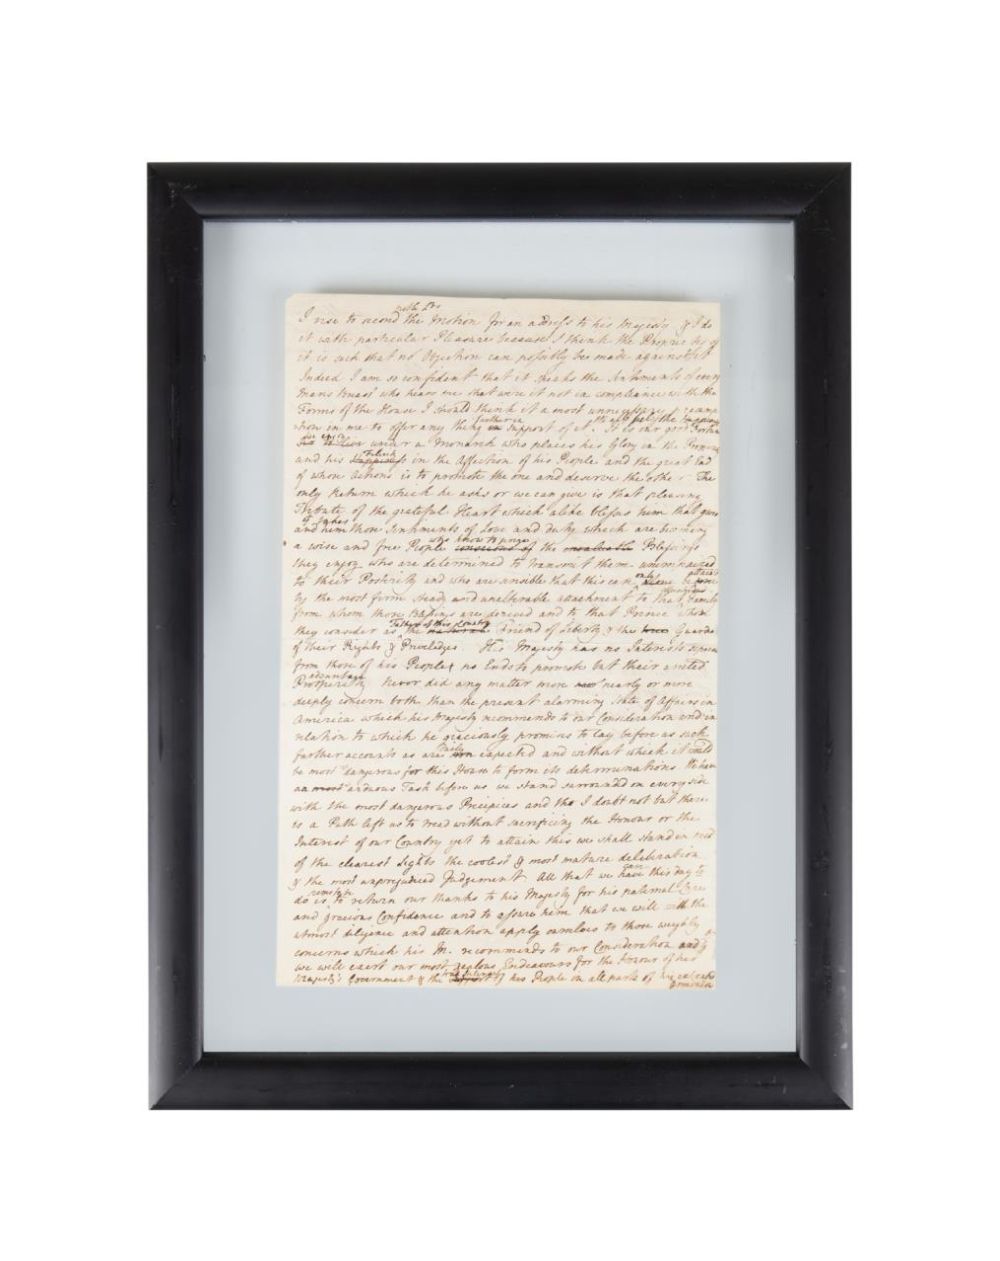 I rise to second the Motion for an address to his Majesty & I do
it with particular Pleasure because I think the Propriety of
it is such that no Objection can possibly be made against it
Indeed I am so confident that it speaks the Sentiments of every
Mans breast who hears me that were it not in compliance with the
Forms of the House I should think it a most unnecessary
in me to offer any thing further in support of it. It is our good Fortune
under a Monarch who places his Glory in the
and his in the Affection of his People and the great End
of whose Actions is to promote the one and deserve the other. The
only Return which he asks or we can give is that pleasing
Tribute of the grateful Heart which alike blesses him that gives
& him that takes
and those Sentiments of Love and duty which are becoming
who know to prize
a wise and free People conscious of the invaluable Blessings
they enjoy who are determined to transmit them unimpaired
to their Posterity and who are sensible that this can only be
by the most firm steady and unalterable attachment to that Family
from whom those are derived and to that Prince whom
Father of this Country
they consider as the natural Friend of Liberty & the Guardian
of their Rights & Priviledges. His Majesty has no Interests separate
from those of his People, no Ends to promote but their united
advantage
Prosperity never did any matter more nearly or more
deeply concern both than the present alarming State of Affairs in
America which his Majesty recommends to our Consideration and in
relation to which he graciously promises to lay before us such
further accounts as are daily expected and without which it would
be most dangerous for this House to form its determinations. We have
an most arduous Task before us we stand surrounded on every side
with the most dangerous Precipices and tho I doubt not but there
is a Path left us to tread without sacrificing the Honour or the
Interest of our Country yet to attain this we shall stand in need
of the clearest Lights the coolest & most mature deliberation
& the most unprejudiced Judgement. All that we can have this day to
do is to return our thanks to his Majesty for his paternal Care
and gracious Confidence and to assure him that we will with the
utmost diligence and attention apply ourselves to those weighty
concerns which his M. recommends to our Consideration and
we will exert our most zealous Endeavours for the Honour of his
Majesty's Government & the support of his People in all parts of his extensive
Dominions